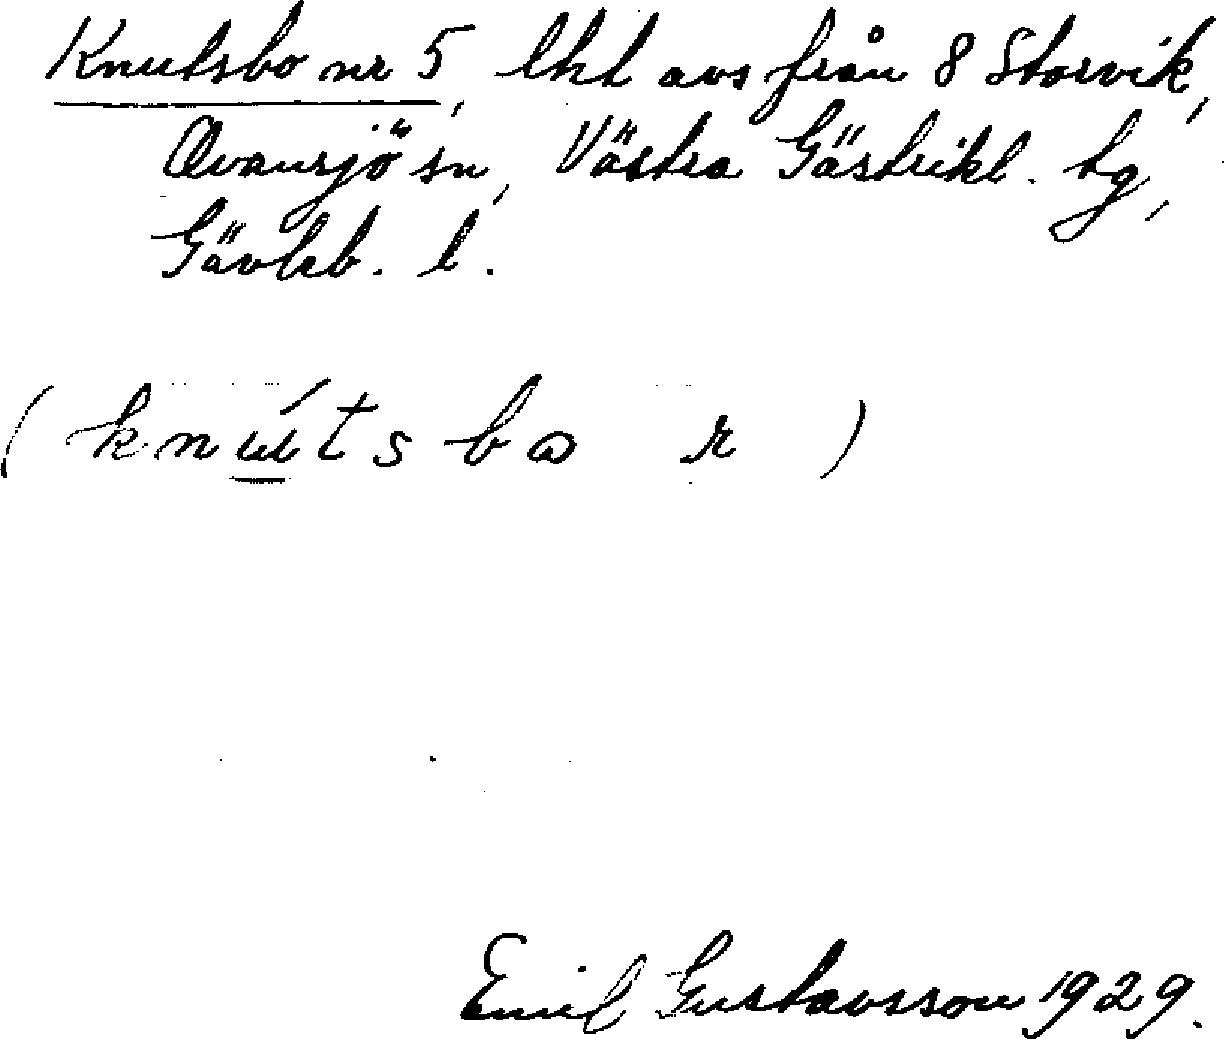 Knutsbo nr 5, lht avs från 8 Storvik,
Ovansjö sn, Västra Gästrikl. tg,
Gävleb. l.
(knútsbo r)
Emil Gustavsson 1929.